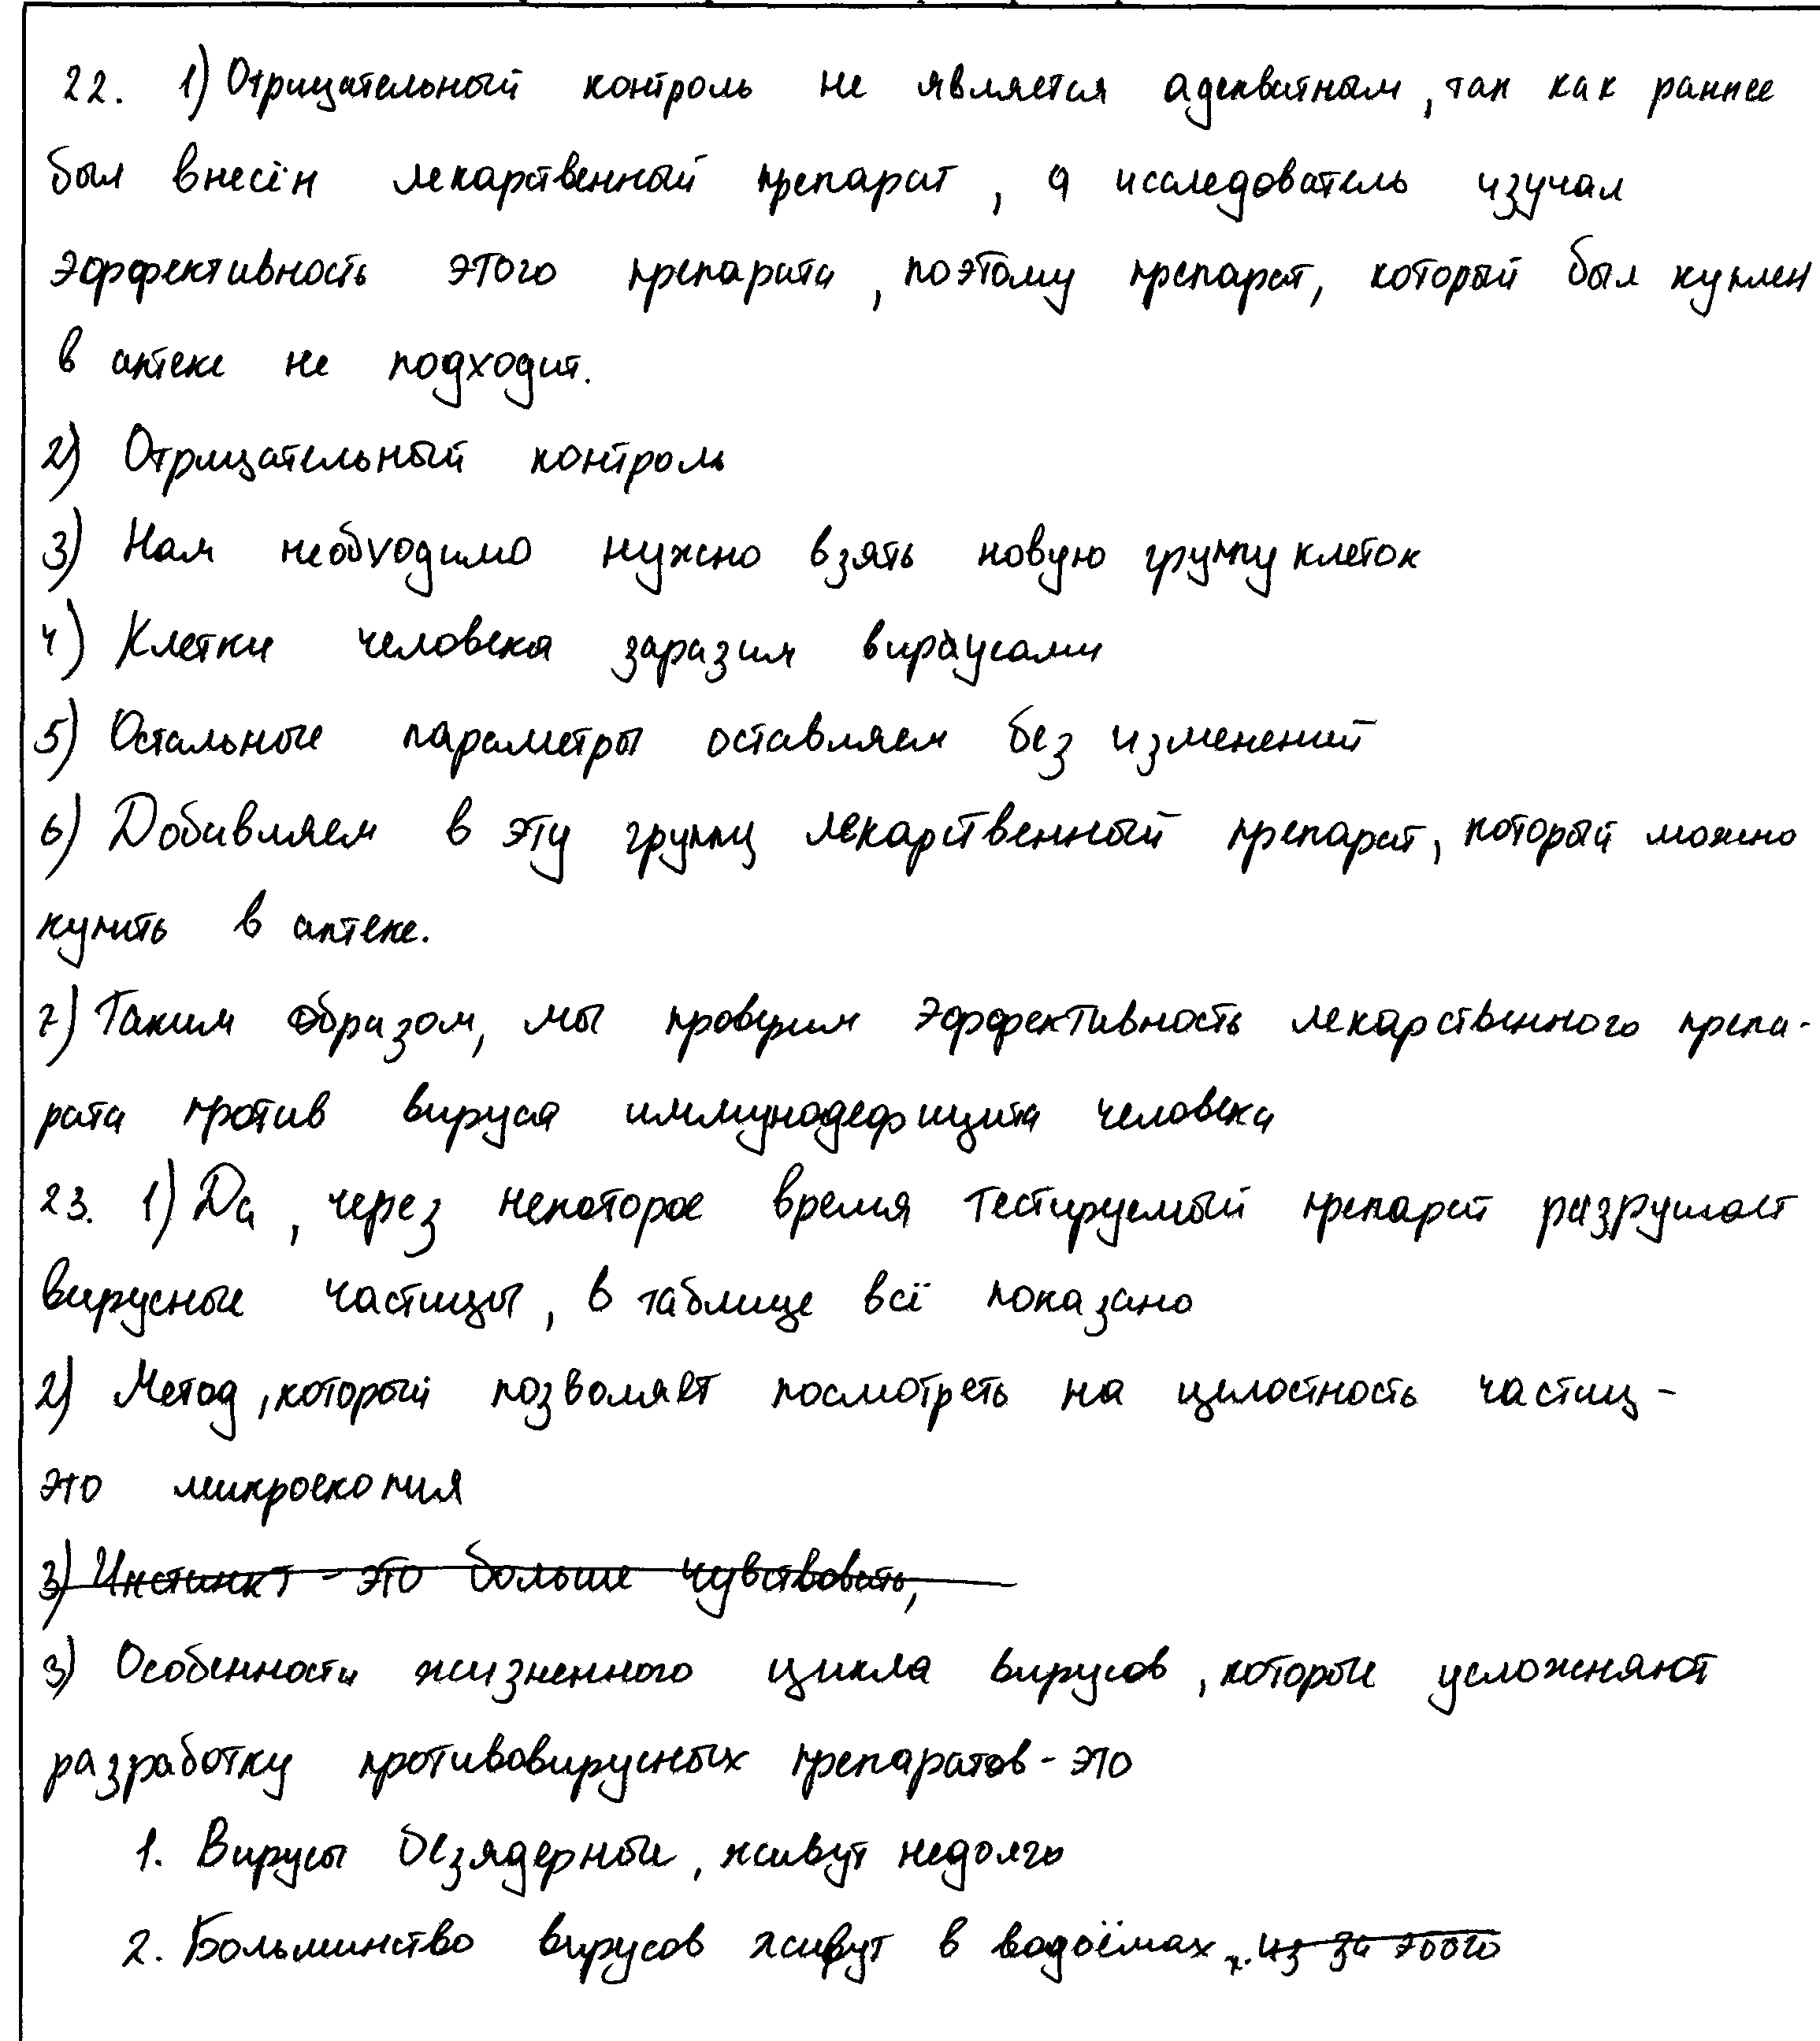 22. 1) Отрицательный контроль не является адекватным, так как раннее
был внесён лекарственный препарат, а исследователь изучал
эффективность этого препарата, поэтому препарат, который был куплен
в аптеке не подходит.
2) Отрицательный контроль
3) Нам необходимо нужно взять новую группу клеток
4) Клетки человека заразим вирусами
5) Остальные параметры оставляем без изменений
6) Добавляем в эту группу лекарственный препарат, который можно
купить в аптеке.
7) Таким образом, мы проверим эффективность лекарственного препа-
рата против вируса иммунодефицита человека
23. 1) Да, через некоторое время тестируемый препарат разрушает
вирусные частицы, в таблице всё показано
2) Метод, который позволяет посмотреть на целостность частиц -
это микроскопия
3) Инстинкт - это больше чувствовать,
3) Особенности жизненного цикла вирусов, которые усложняют
разработку противовирусных препаратов - это
1. Вирусы безядерные, живут недолго
2. Большинство вирусов живут в водоёмах. из за